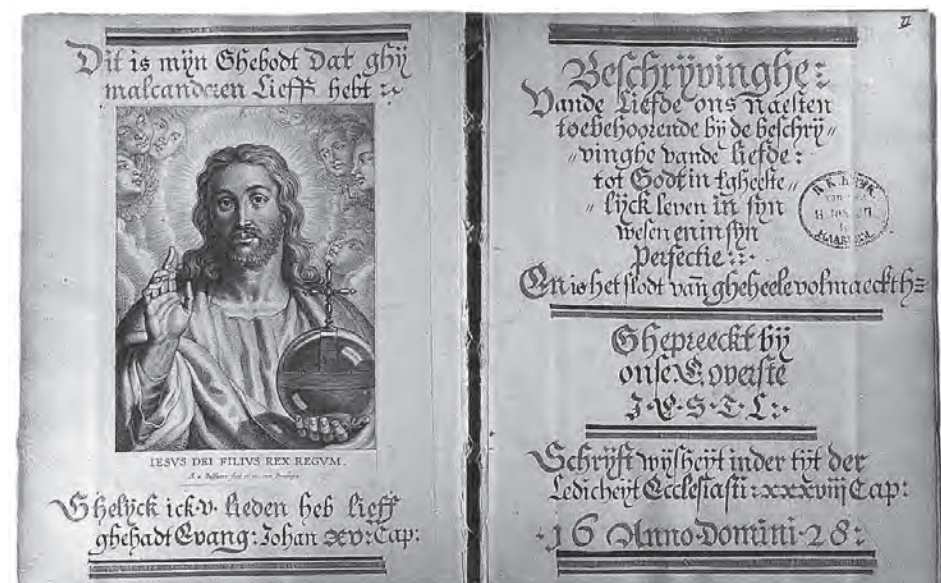 Dit is mijn Ghebodt Dat ghij
malcanderen Lieff hebt
IESVS DEI FILIVS REX REGVM.
Ghelijck ick v. lieden heb lieff
ghehadt Evang: Iohan xv: Cap:
II
Beschrijvinghe:
Vande Liefde ons naesten
toebehoorende bij de beschrij〃
〃vinghe vande liefde:
tot Godt in tgheeste〃
〃lijck leven in sijn
wesen en in sijn
Perfectie
En is het slodt van gheheele volmaeckth
Ghepreeckt bij
onse E. overste
J·E·S·T·L
Schrijft wijsheijt inder tijt der
Ledicheijt Ecclesiasti: xxxviij Cap:
·16 Anno·Domini·28:
HAARLEM